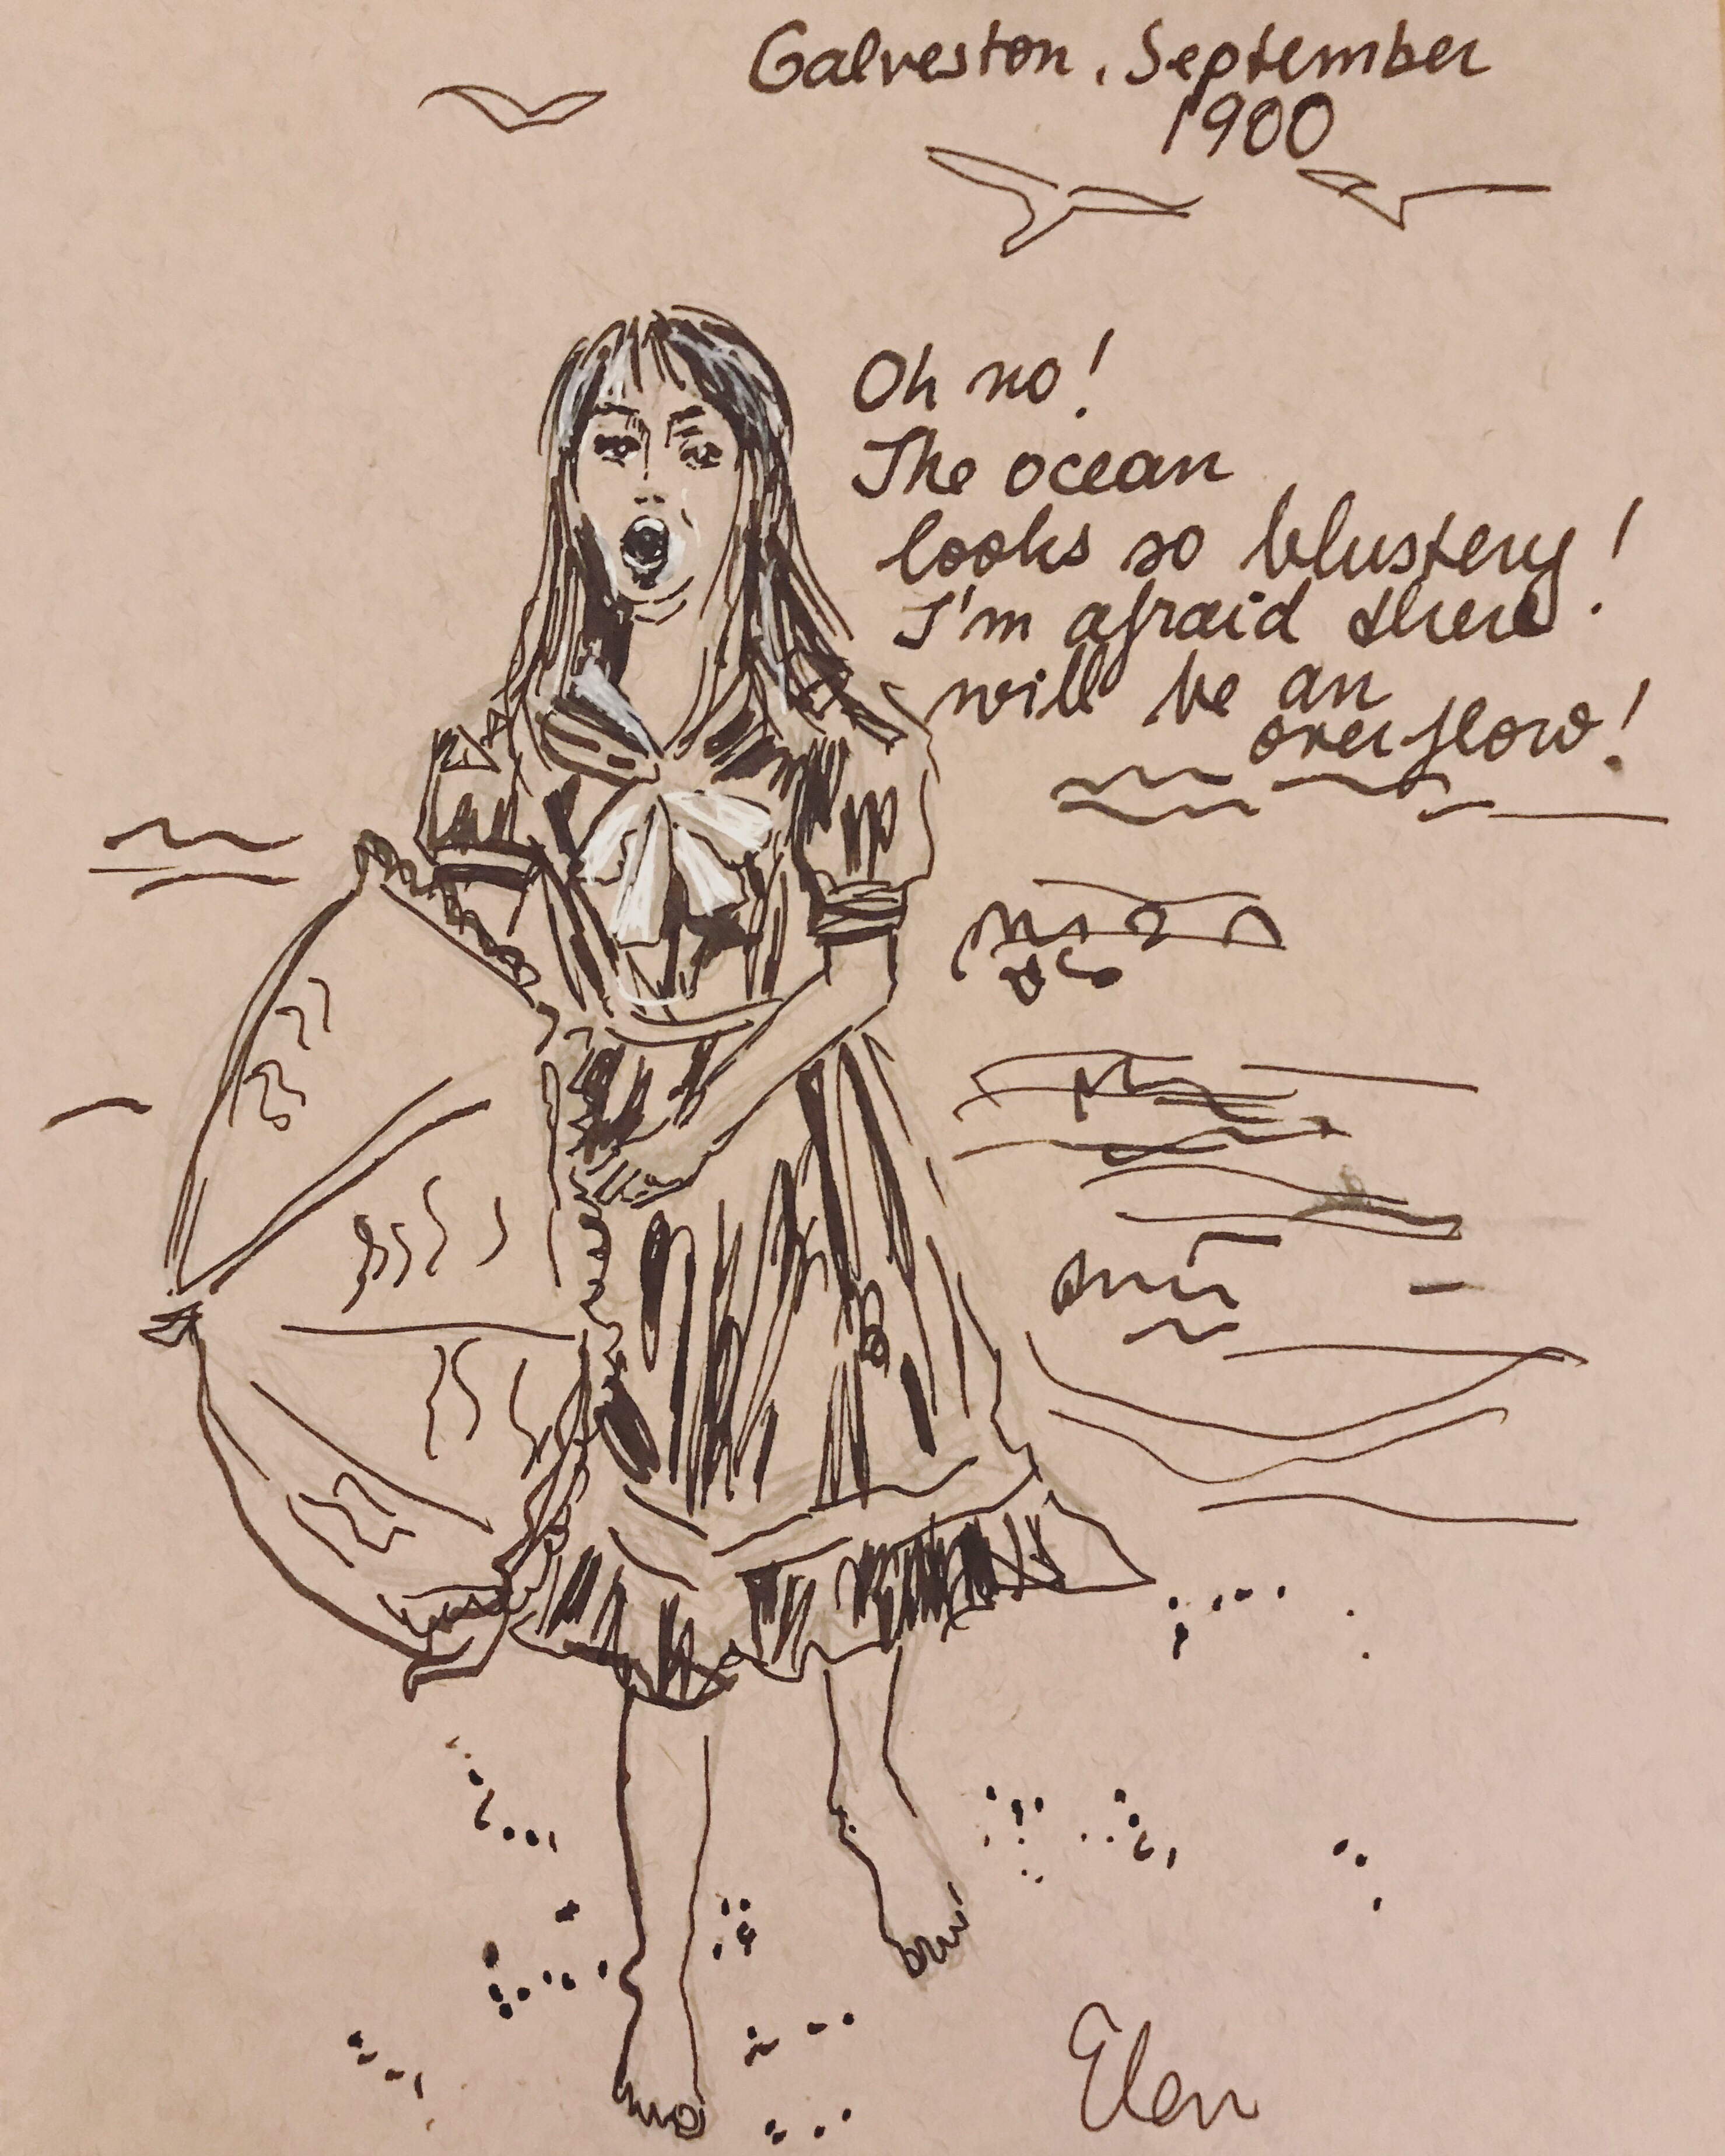 Galveston, September
1900
Oh no!
The ocean
looks so blustery!
I'm afraid there
will be an
overflow!
Elen